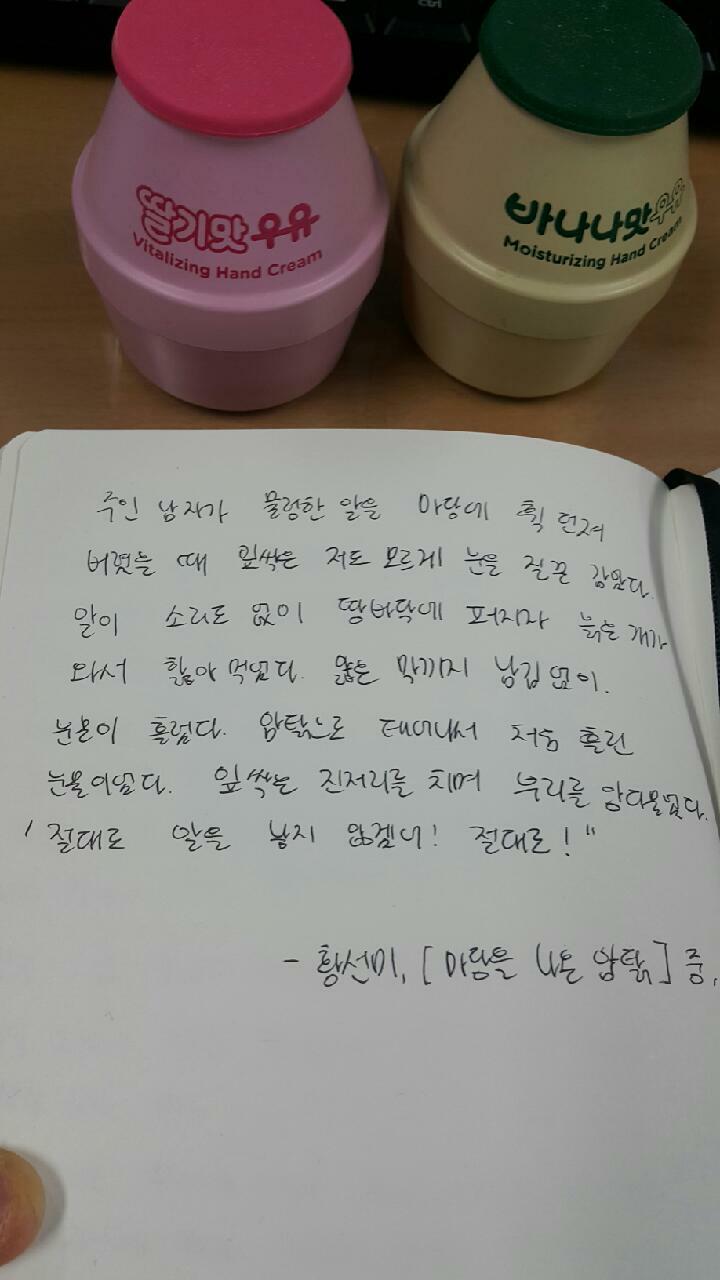 딸기맛우유
Vitalizing Hand Cream
바나나맛우유
Moisturizing Hand Cream
주인 남자가 물렁한 알을 마당에 휙 던져
버렸을 때 잎싹은 저도 모르게 눈을 질끈 감았다.
알이 소리도 없이 땅바닥에 퍼지자 늙은 개가
와서 핥아 먹었다. 얇은 막까지 남김 없이.
눈물이 흘렀다. 암탉으로 태어나서 처음 흘린
눈물이었다. 잎싹은 진저리를 치며 부리를 앙다물었다.
"절대로 알을 낳지 않겠어! 절대로!"
- 황선미, [마당을 나온 암탉] 중,